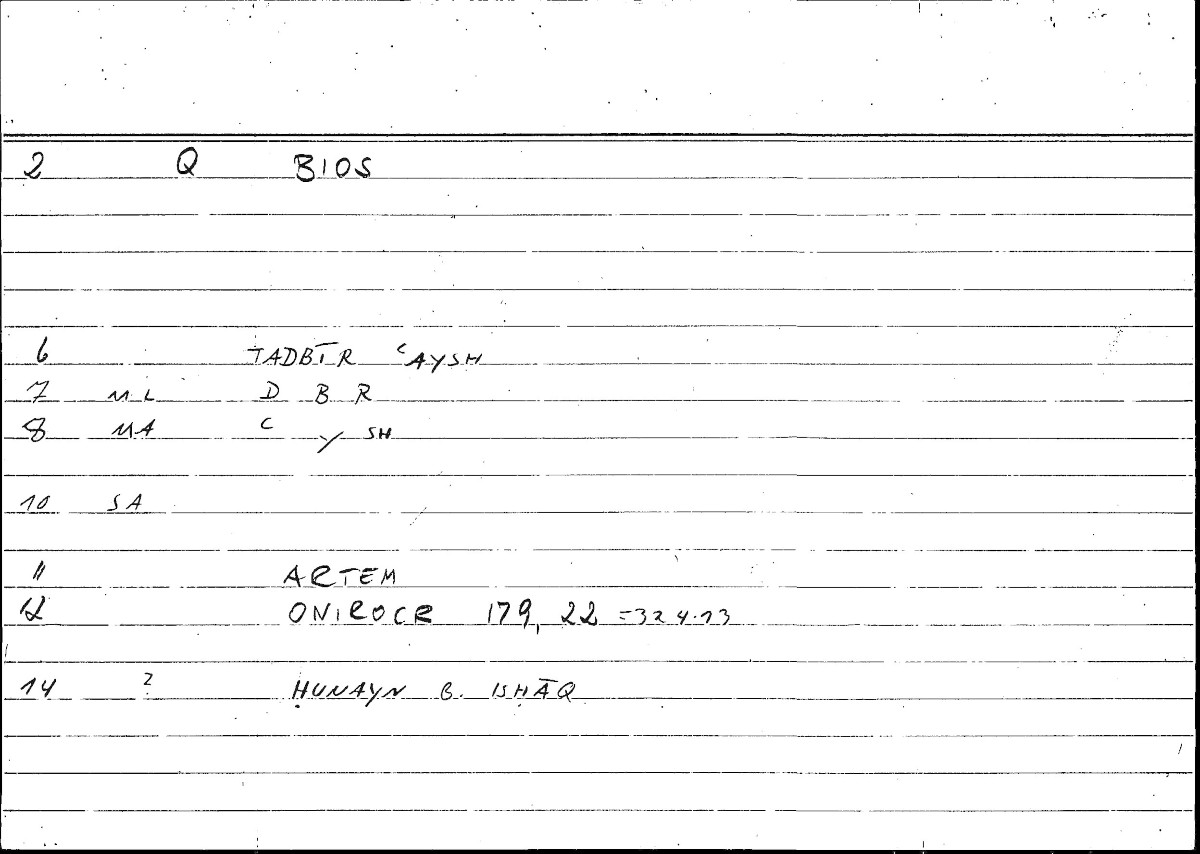 2 Q BIOS
6 TADBĪR ʿAYSH
7 ML D B R
8 MA ʿ Y SH
10 SA
11 ARTEM
12 ONIROCR 179, 22 = 324.13
14 2 ḤUNAYN B. ISḤĀQ